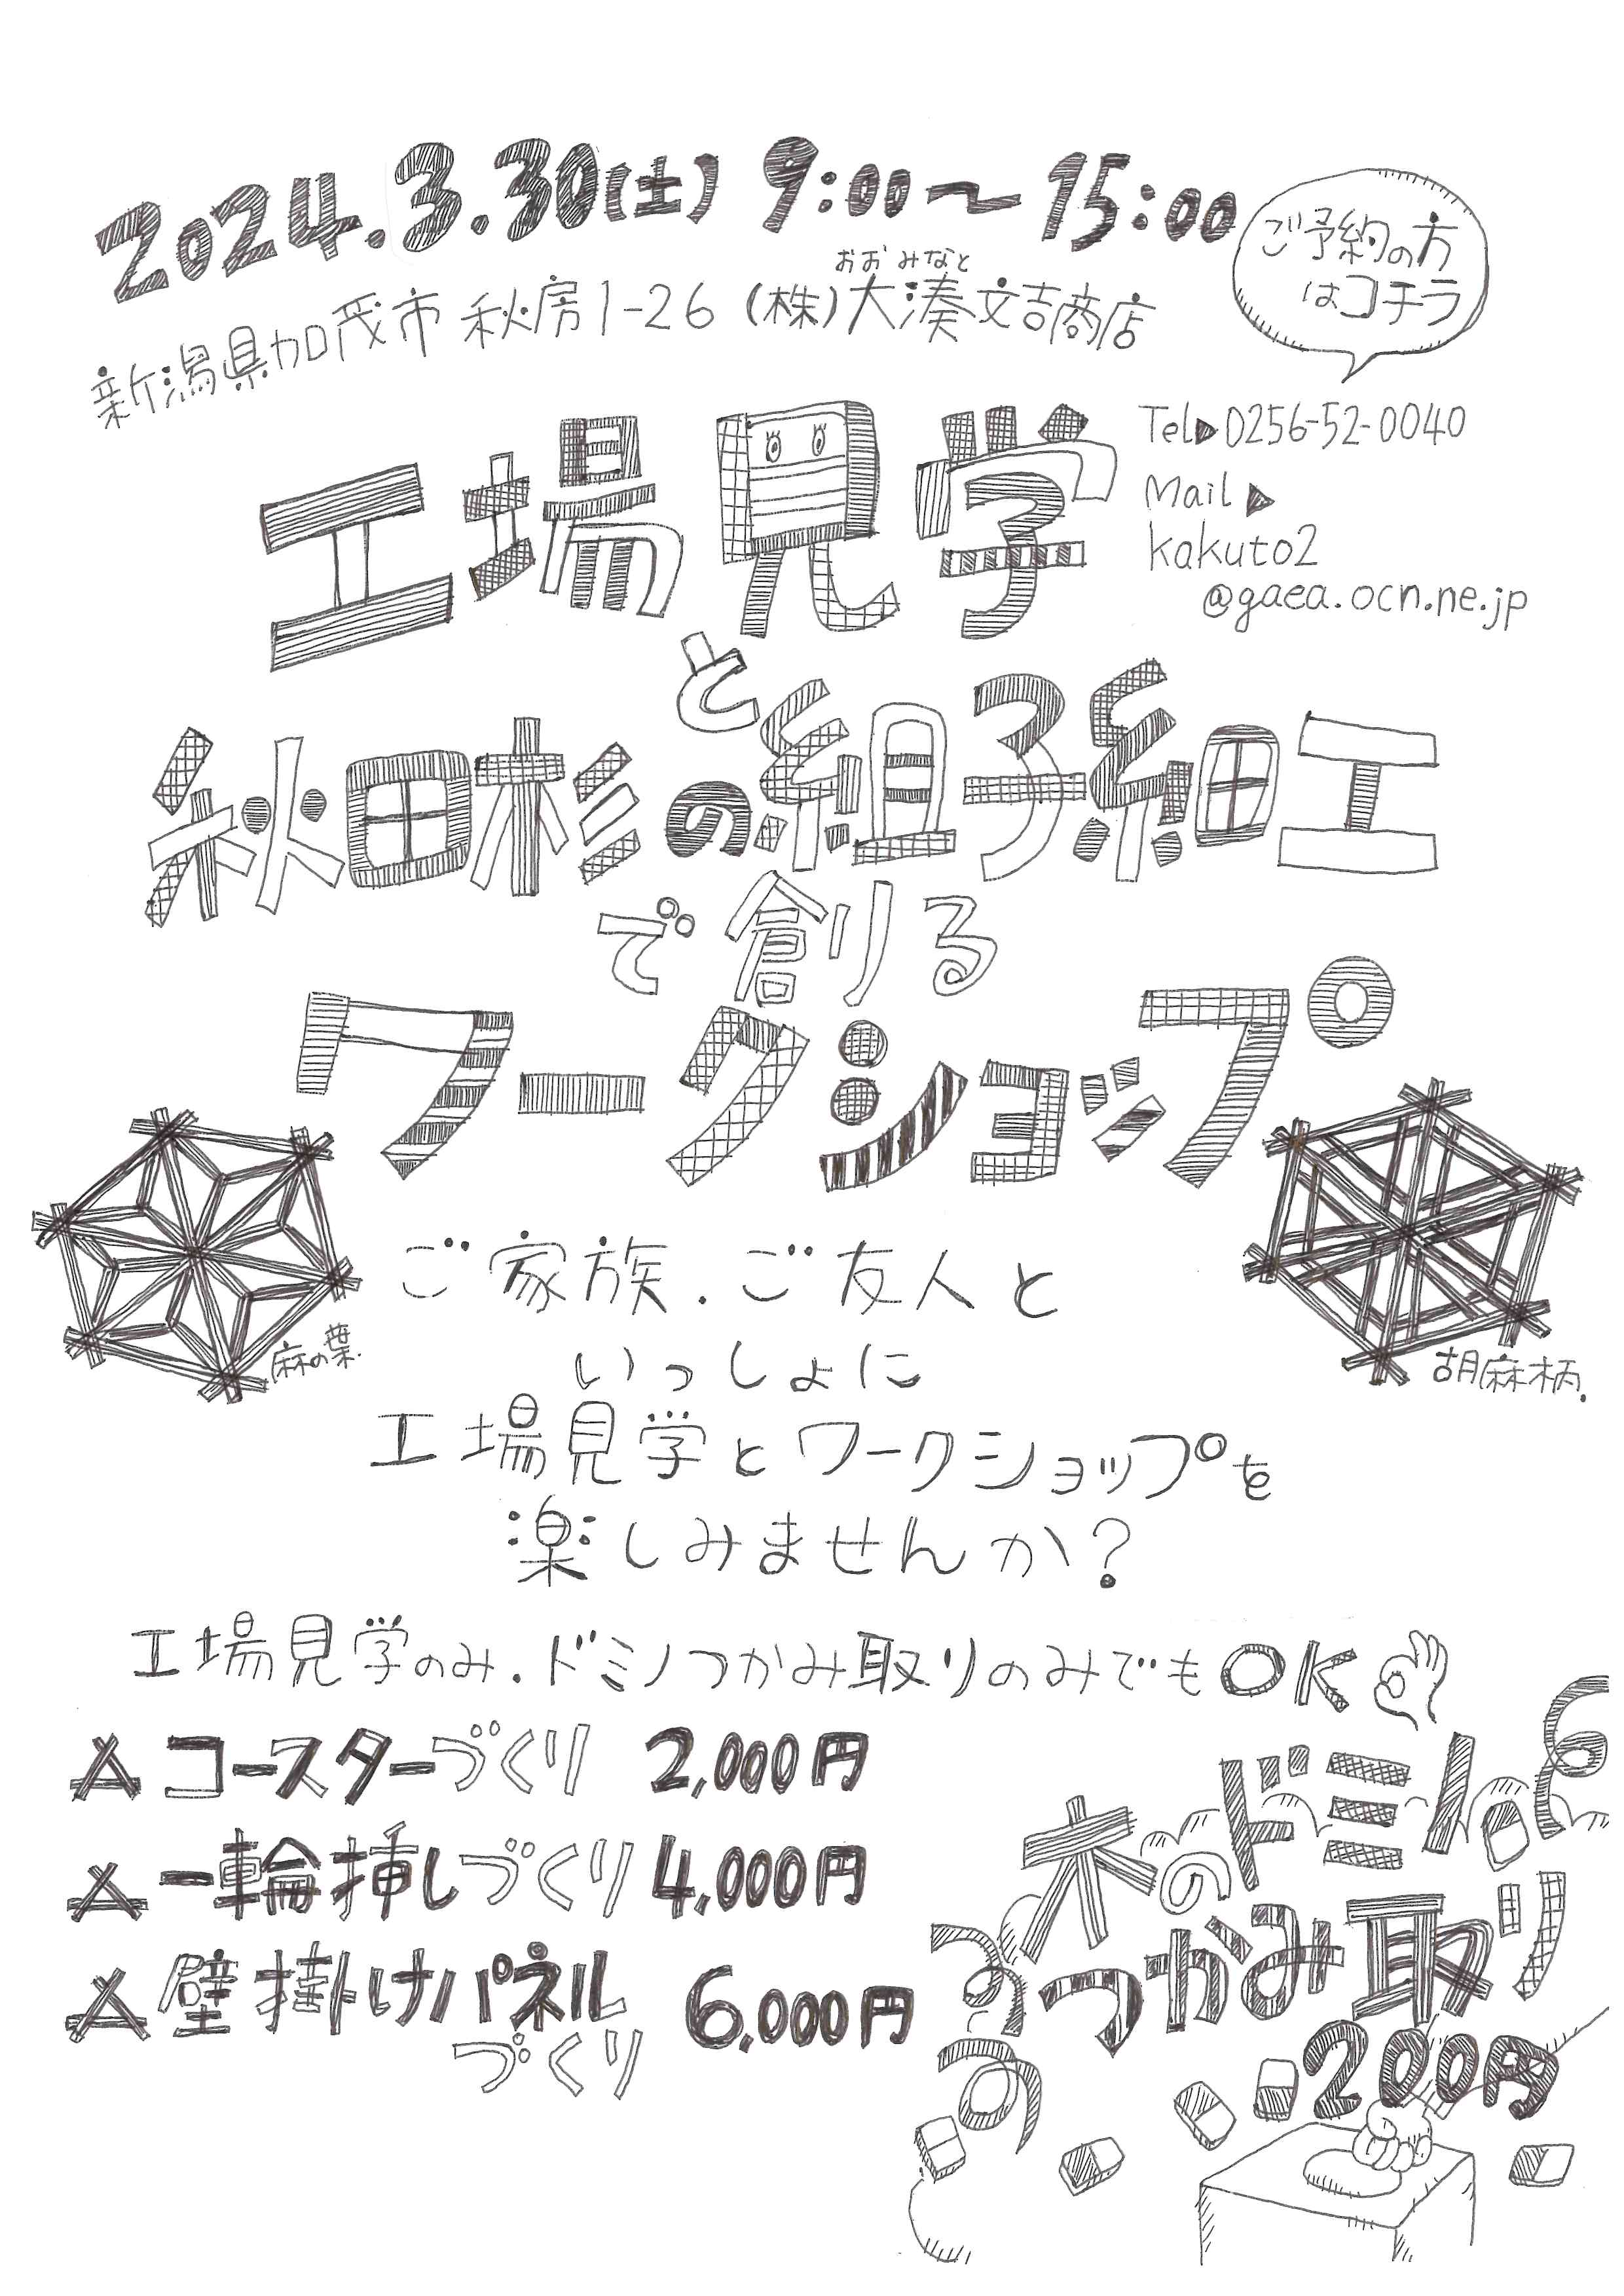 2024.3.30(土) 9:00〜15:00
新潟県加茂市 秋房1-26 (株)大湊文吉商店
おおみなと
ご予約の方
はコチラ
Tel▶0256-52-0040
Mail▶
kakuto2
@gaea.ocn.ne.jp
工場見学
と
秋田杉の組子細工
で創る
ワークショップ
麻の葉
胡麻柄
ご家族.ご友人と
いっしょに
工場見学とワークショップを
楽しみませんか?
工場見学のみ.ドミノつかみ取りのみでもOK
コースターづくり 2,000円
一輪挿しづくり 4,000円
壁掛けパネル
づくり 6,000円
木のドミノ
つかみ取り
200円